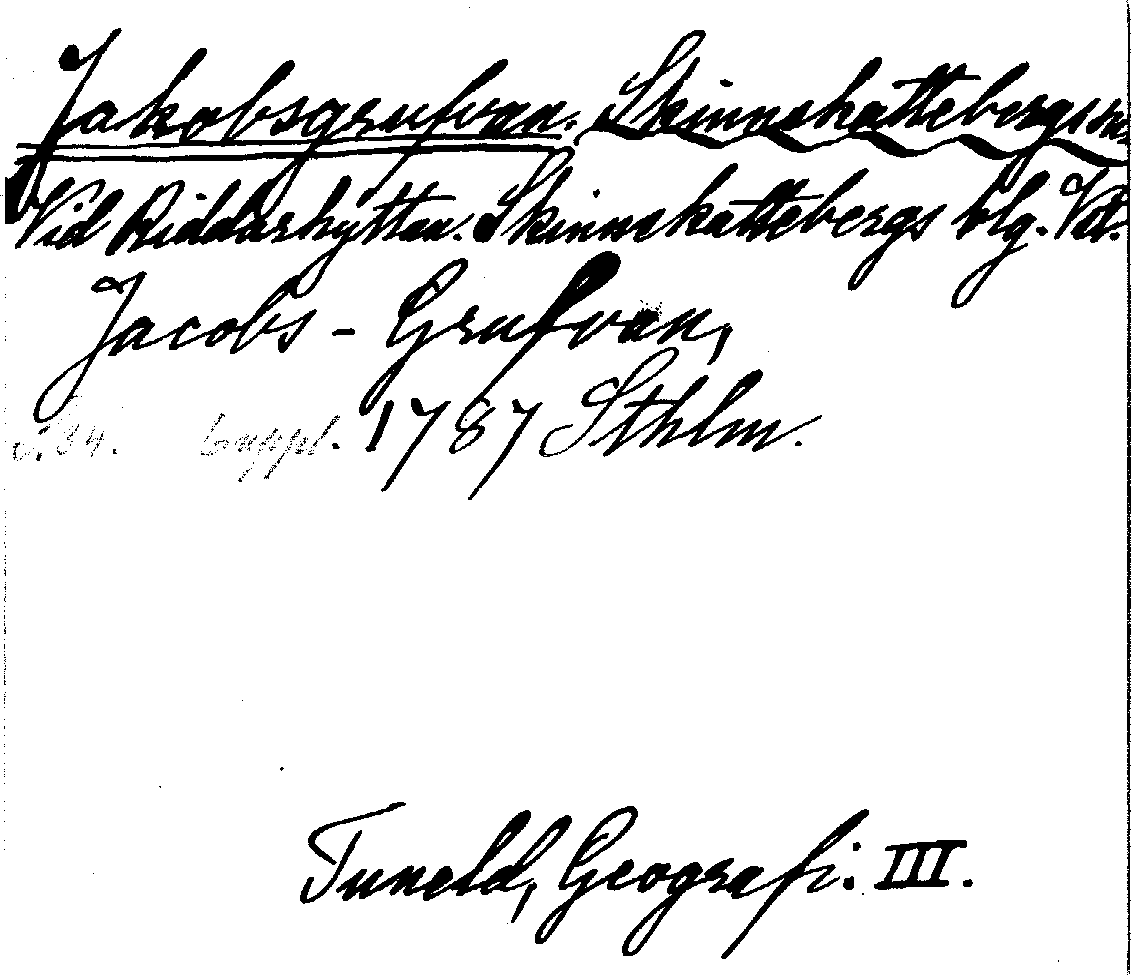 Jakobsgrufvan. Skinnskattebergs sn.
Vid Riddarhyttan. Skinnskattebergs blg. Vstl.
Jacobs - Grufvan,
s. 34. Cuppl. 1787 Sthlm.
Tuneld, Geografi. III.